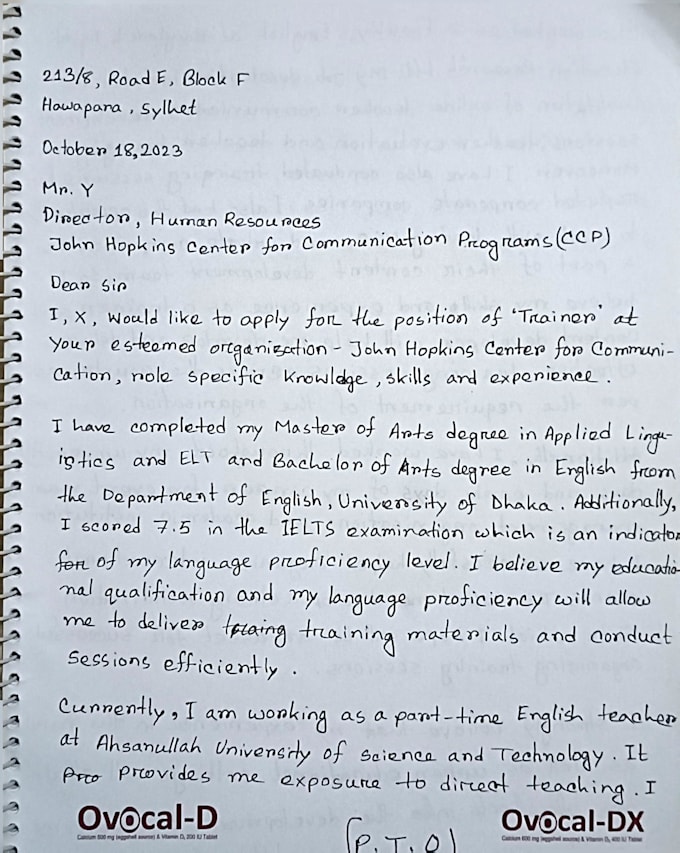 213/8, Road E, Block F
Hawapara, Sylhet
October 18, 2023
Mr. Y
Director, Human Resources
John Hopkins Center for Communication Programs (CCP)
Dear Sir
I, X, would like to apply for the position of 'Trainer' at
your esteemed organization - John Hopkins Center for Communi-
cation, role specific knowldge, skills and experience.
I have completed my Master of Arts degree in Applied Lingu-
istics and ELT and Bachelor of Arts degree in English from
the Department of English, University of Dhaka. Additionally,
I scored 7.5 in the IELTS examination which is an indicator
for of my language proficiency level. I believe my educatio-
nal qualification and my language proficiency will allow
me to deliver training materials and conduct
sessions efficiently.
Currently, I am working as a part-time English teacher
at Ahsanullah University of Science and Technology. It
Pro provides me exposure to direct teaching. I
Ovocal-D
Calcium 600 mg (eggshell source) & Vitamin D, 200 IU Tablet
(P.T.O)
Ovocal-DX
Calcium 600 mg (eggshell source) & Vitamin D, 400 IU Tablet